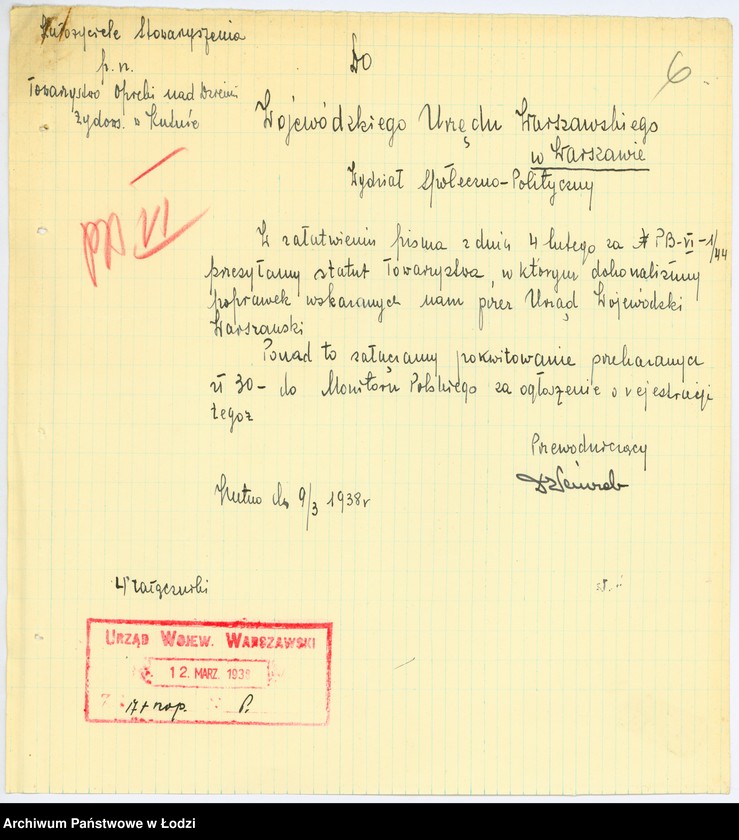 Założyciele Stowarzyszenia
p. n.
Towarzystwo Opieki nad Dziećmi
Żydow. w Kutnie
Do
6.
Wojewódzkiego Urzędu Warszawskiego
w Warszawie
Wydział Społeczno-Polityczny
VI
W załatwieniu pisma z dnia 4 lutego za № PB-VI-1/44
przesyłamy statut Towarzystwa, w którym dokonaliśmy
poprawek wskazanych nam przez Urząd Wojewódzki
Warszawski
Ponad to załączamy pokwitowanie przekazanych
zł 30- do Monitoru Polskiego za ogłoszenie o rejestracji
tegoż
Przewodniczący
Kutno dn 9/3 1938r
4 załączniki
URZĄD WOJEW. WARSZAWSKI
12. MARZ. 1938
P.
Archiwum Państwowe w Łodzi